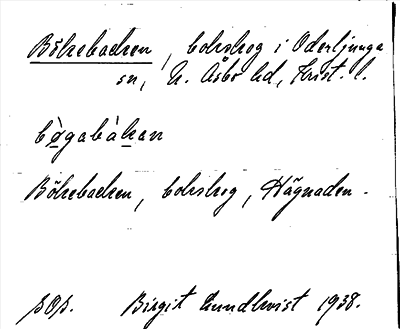 Bökebacken, bokskog i Oderljunga
sn, N. Åsbo hd, Krist. l.
bø̀gabàkan
Bökebacken, bokskog, Hägnaden.
Birgit Lundkvist 1938.